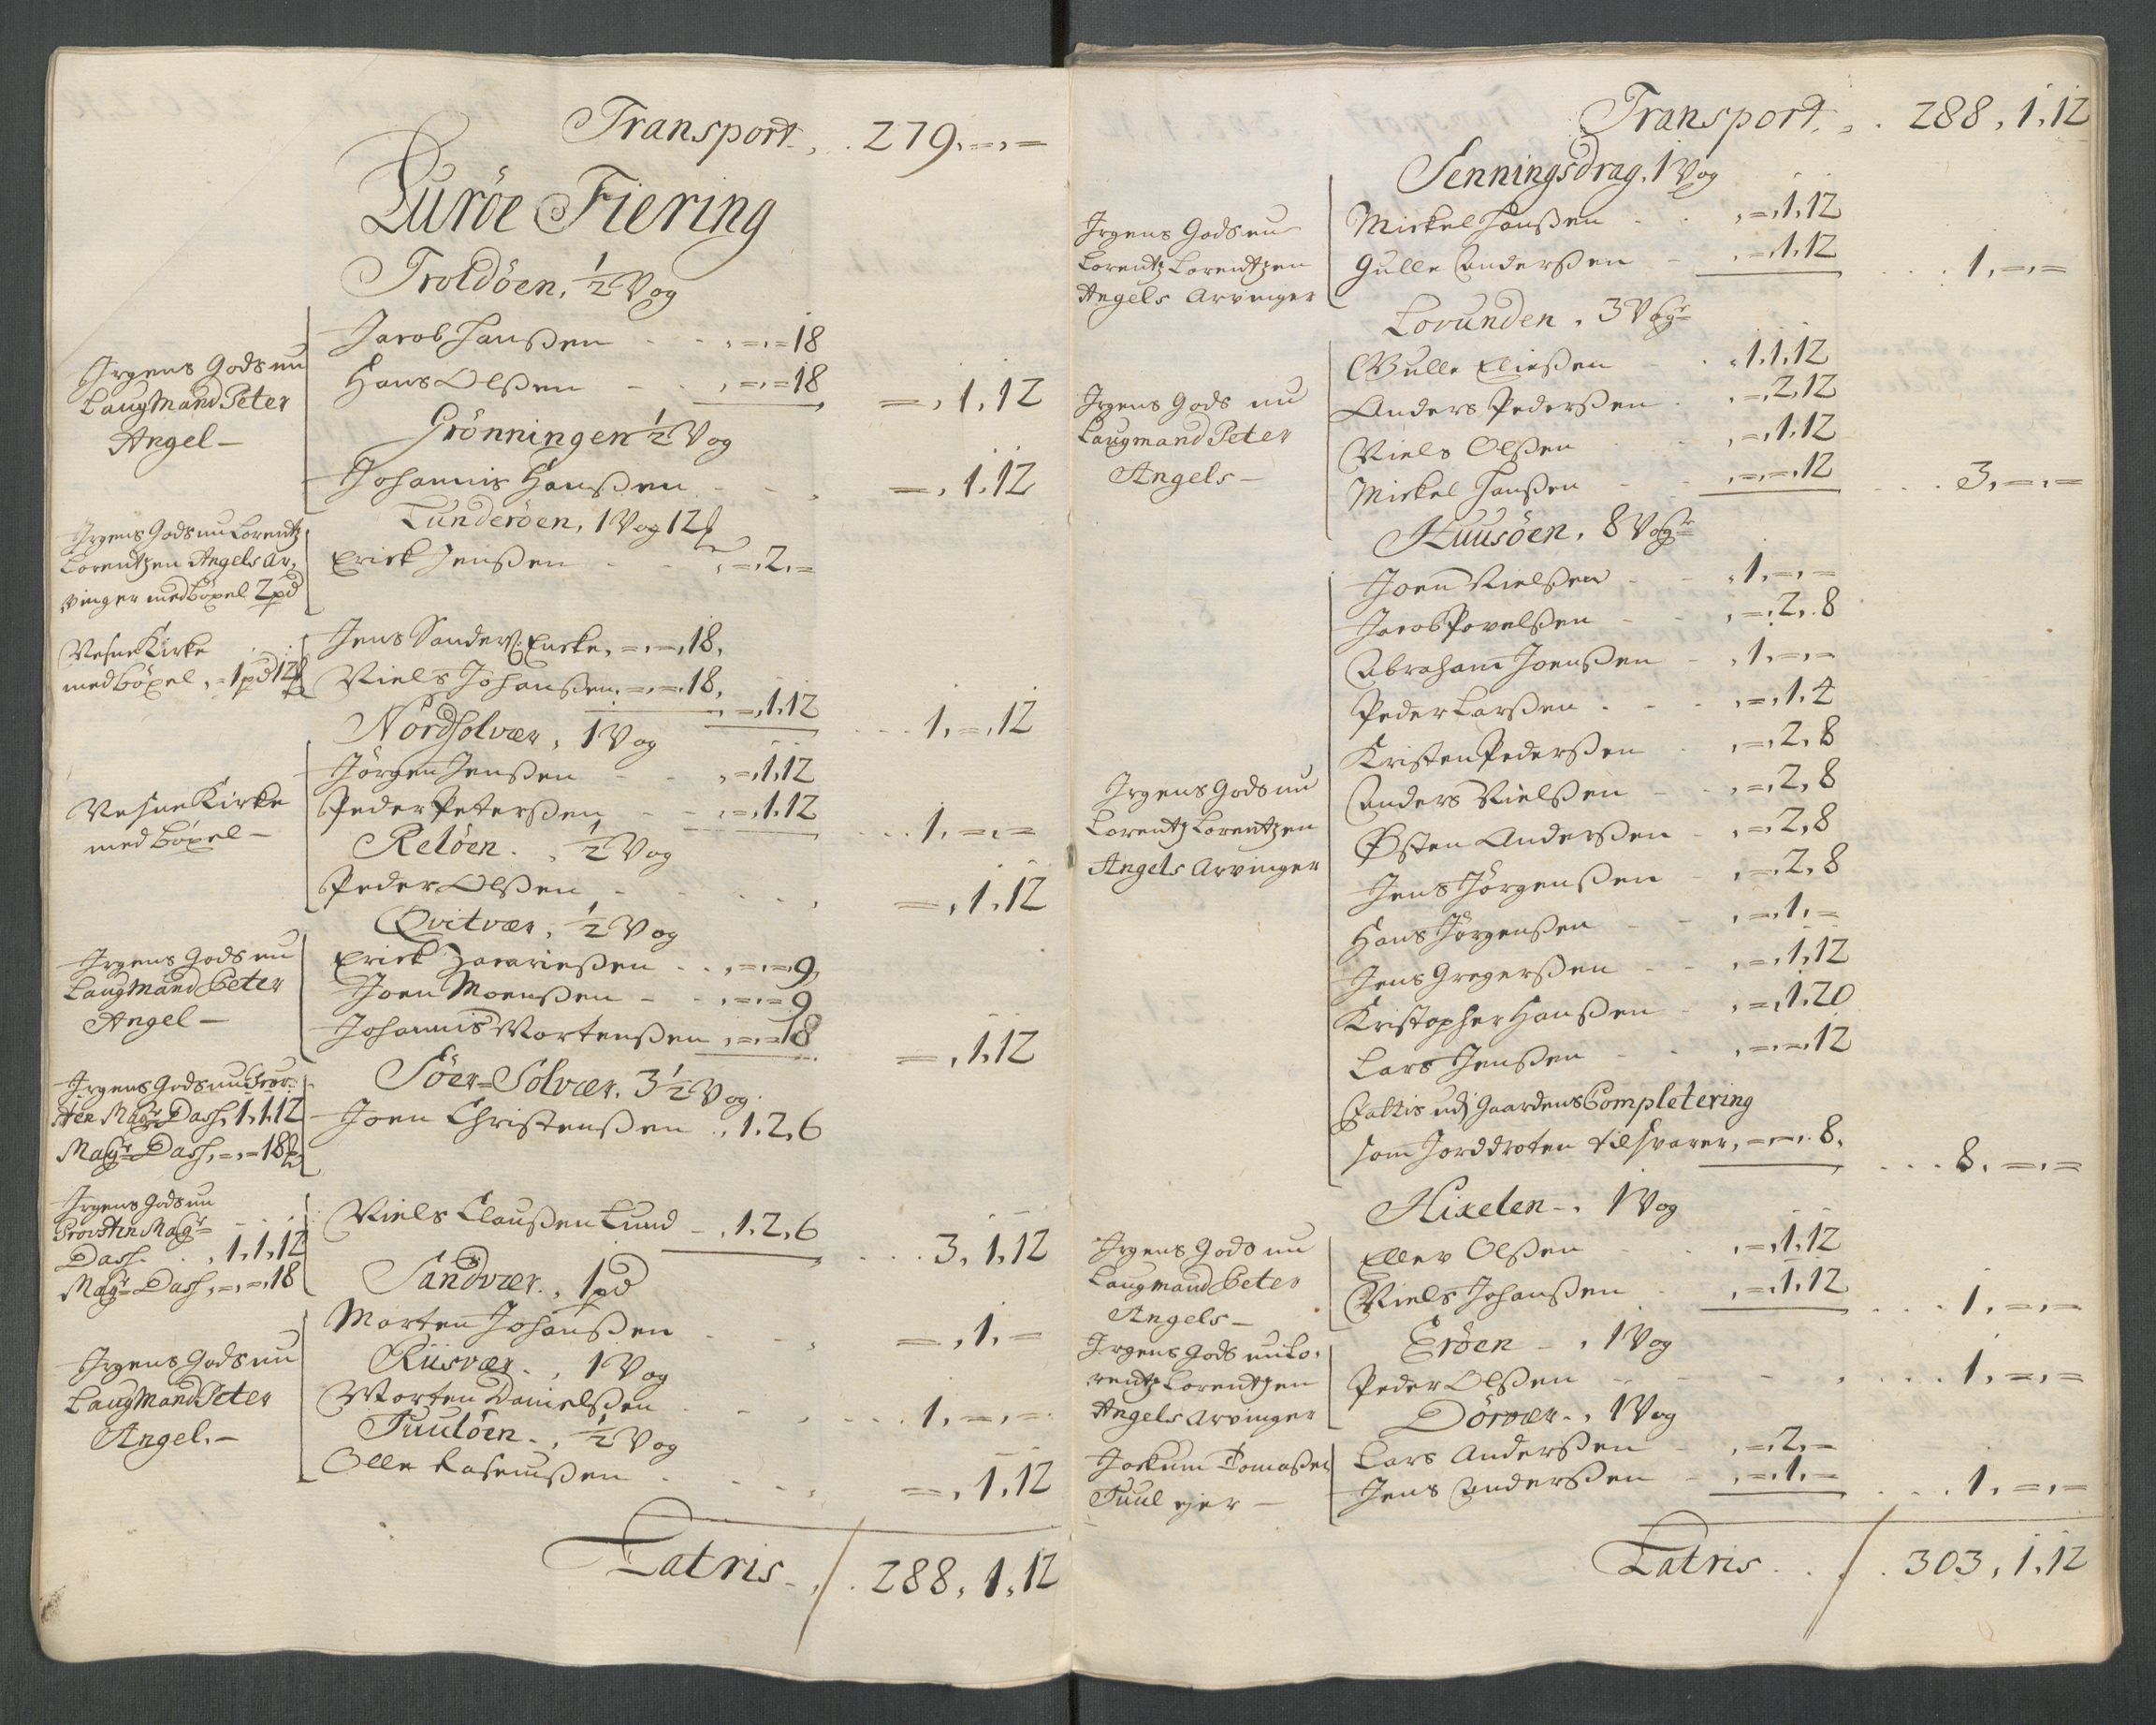 Transport . . 279 . = . =
Luröe Fiering
Troldöen, ½ Vog
Jrgens Gods nu
LaugMand Peter
Angel –
Jacob Hanßen - - , = , = 18
Hans Olßen - - , = , = 18
= , 1 , 12
Grönningen ½ Vog
Johannis Hanßen - - , = , 1 . 12
Lunderöen, 1 Vog 12 ℔
Jrgens Gods nu Lorentz
Lorentzen Angels Ar,
vinger med böxel 2 pd
Erick Jenßen - - , = , 2 , =
Nesne Kirke
med böxel , = 1 pd 12 ℔
Jens Sanders: Encke , = , = , 18 ,
Niels Johanßen , = , = . 18 ,
, = , 1 . 12
. . . 1 , = , 12
Nordsolvær, 1 Vog
Nesne Kirke
med böxel –
Jörgen Jenßen - - , = , 1 . 12
Peder Peterßen - - , = , 1 . 12
. . . 1 , = , =
Reløen . , ½ Vog
Peder Olßen - - . . . , = , 1 . 12
Qvitvær, ½ Vog
Jrgens Gods nu
LaugMand Peter
Angel –
Erick Zacarießen . . , = , = 9 ,
Joen Moenßen - - , = , = 9
Johannis Mortenßen , = , = 18
= , 1 , 12
Söer=Solvær, 3 ½ Vog .
Jrgens Gods nu Prov:
sten Magr Dass , 1 , 1 , 12
Magr Dass , = , = 18 ℔
Joen Christenßen . , 1 . 2 , 6
Jrgens Gods nu
Provsten Magr
Dass . . , 1 , 1 , 12
Magr Dass , = , = , 18
Niels Claußen Lund – , 1 . 2 , 6
. . . 3 , 1 , 12
Sandvær . , 1 pd
Morten Johanßen - - , = , 1 , =
Jrgens Gods nu
LaugMand Peter
Angel . –
Riisvær . , 1 Vog
Morten Danielßen . - , . . . . 1 , = , =
Tuuløen . , ½ Vog
Olle Rasmußen . . . . , = , 1 , 12
Latris – , / . 288 , 1 , 12
Transport . , . 288 , 1 , 12
Senningsdrag, 1 Vog
Jrgens Gods nu
Lorentz Lorentzen
Angels Arvinger
Mickel Hanßen - . , = , 1 , 12
Gulle Anderßen - . , = , 1 , 12
. . . . 1 , = , =
Lovunden . 3 Vogr
Jrgens Gods nu
Laugmand Peter
Angels –
Gulle Eließen - . , 1 . 1 . 12
Anders Pederßen . , = , 2 , 12
Niels Olßen . . , = , 1 . 12
Mickel Hanßen - - , = , = , 12
. . . . 3 , = , =
Huusöen . 8 Vogr
Jrgens Gods nu
Lorentz Lorentzen
Angels Arvinger
Joen Nielßen - - , 1 , = , =
Jacob Povelßen - - , = , 2 , . 8
Abraham Joenßen - , 1 , = , =
Peder Larßen . - - , = , 1 . 4
Kristen Pederßen . , = , 2 , 8
Anders Nielßen - - , = , 2 , 8
Østen Anderßen - , = , 2 , 8
Jens Jörgenßen - , = , 2 , 8
Hans Jörgenßen - - , = , 1 , =
Jens Gregerßen - - , = , 1 , 12
Kristopher Hanßen - , = , 1 . 20
Lars Jenßen - . , = , = , 12
Fattis udj Gaardens Completering
som Jorddroten tilsvarer , = , = , 8 ,
. . . 8 , = , =
Hixelen – , 1 Vog
Jrgens Gods nu
Laugmand Peter
Angels –
Eller Olßen - . , = , 1 . 12
Niels Johanßen . , = , 1 . 12
. . . . 1 , = , =
Eröen – , 1 Vog
Jrgens Gods nu Lo,
rentz Lorentzen
Angels Arvinger
Peder Olßen - - - , . . . . 1 , = , =
Dörvær – , 1 Vog
Jockum Tomaßen
Tuul ejer –
Lars Anderßen - , = , 2 , =
Jens Anderßen - , = , 1 , =
. . . . 1 , = , =
Latris . . / . 303 , 1 , 12